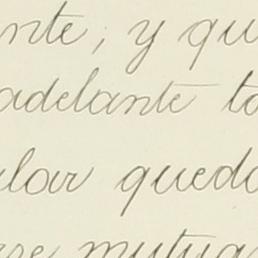 nte; y qu
adelante to
ular queda
rse mutua